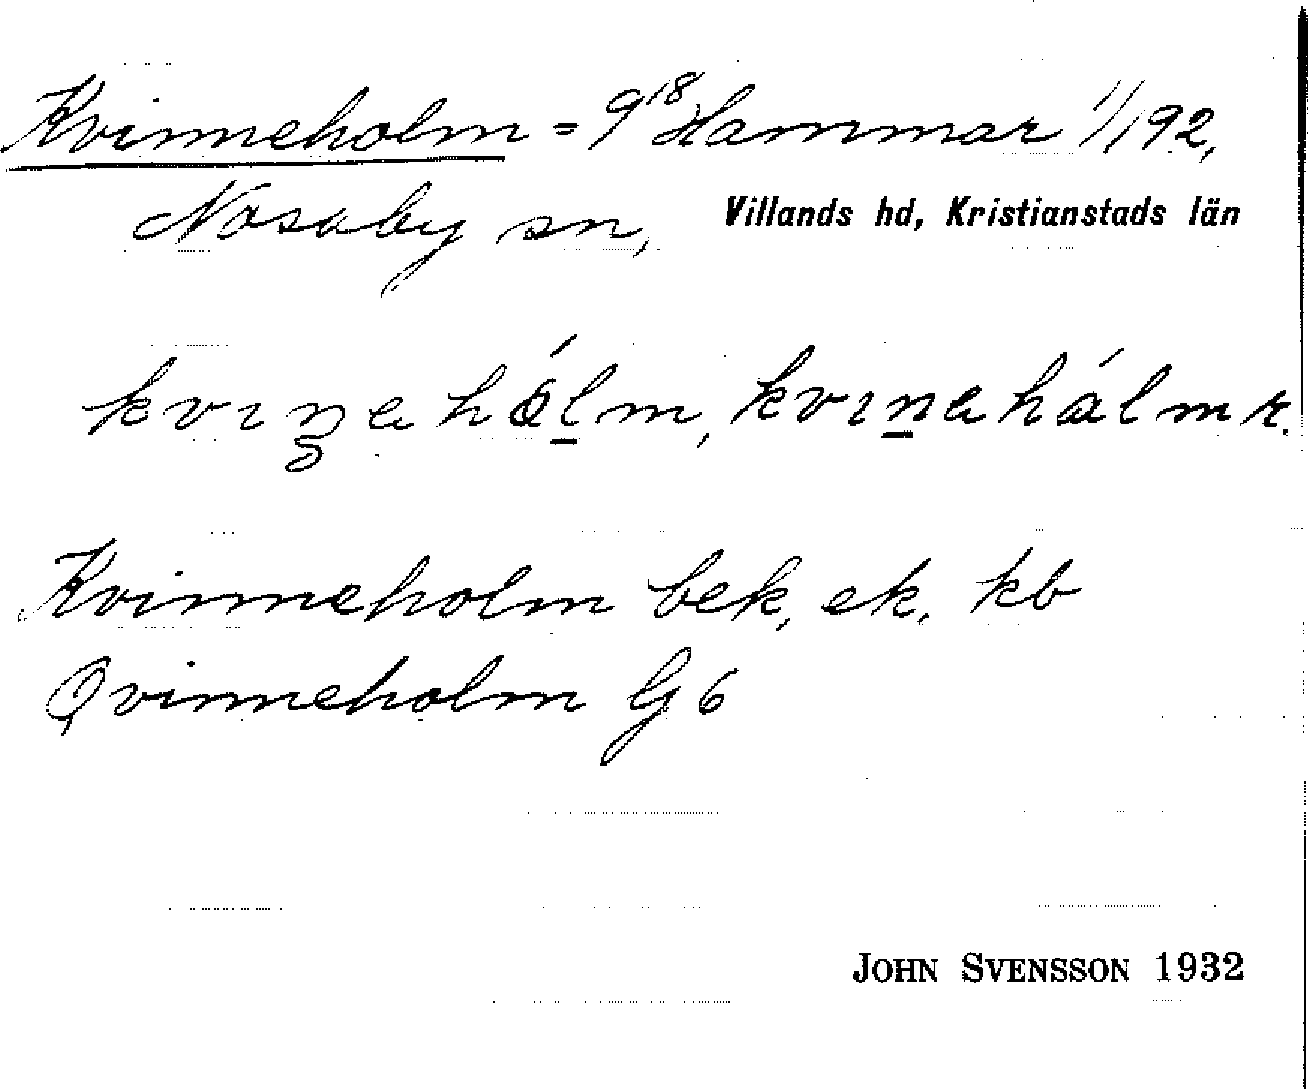 Kvinneholm = 9¹⁸ Hammar 1/192,
Nosaby sn, Villands hd, Kristianstads län
kvınehålm, kvınehálm r.
Kvinneholm bek, ek, kb
Qvinneholm G6
JOHN SVENSSON 1932